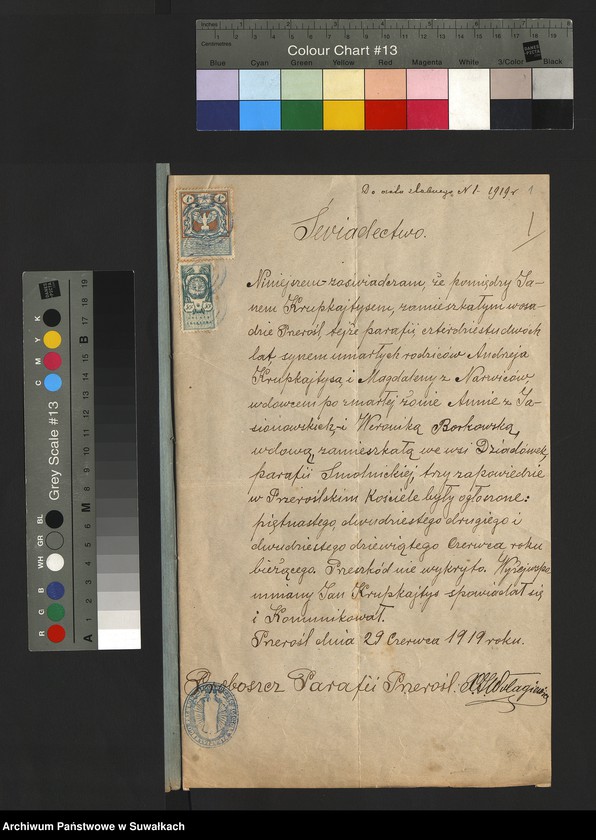 inches
Centimetres
Colour Chart #13
Blue Cyan Green Yellow Red Magenta White 3/Color Black
Grey Scale #13
C M Y K
R G B WH GR BL
A 1 2 3 4 5 6 M 8 9 10 11 12 13 14 15 B 17 18 19
Do aktu ślubnego N 1 - 1919 r
1
Świadectwo.
Niniejszem zaświadczam, że pomiędzy Ja-
nem Krupkajtysem, zamieszkałym w osa-
dzie Przerośl, tejże parafii, czterdziestu dwóch
lat, synem umarłych rodziców Andrzeja
Krupkajtysa i Magdaleny z Narwiców,
wdowcem po zmarłej żonie Annie z Ja-
sionowskich, i Weroniką Borkowską,
wdową, zamieszkałą we wsi Dziadówek,
parafii Smolnickiej, trzy zapowiedzie
w Przeroślskim Kościele były ogłoszone:
piętnastego, dwudziestego drugiego i
dwudziestego dziewiątego Czerwca roku
bieżącego. Przeszkód nie wykryto. Wyżejwspo-
mniany Jan Krupkajtys spowiadał się
i Komunikował.
Przerośl dnia 29 Czerwca 1919 roku.
Proboszcz Parafii Przerośl:
Archiwum Państwowe w Suwałkach